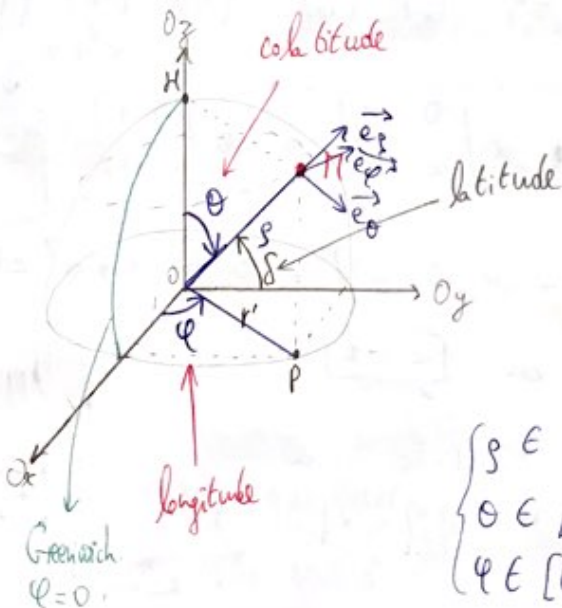 Oz
colatitude
H
e⃗ρ
M
e⃗φ
e⃗θ
latitude
θ
ρ
δ
O
Oy
φ
r'
P
Ox
longitude
Greenwich.
φ=0.
ρ ∈
θ ∈ [
φ ∈ [